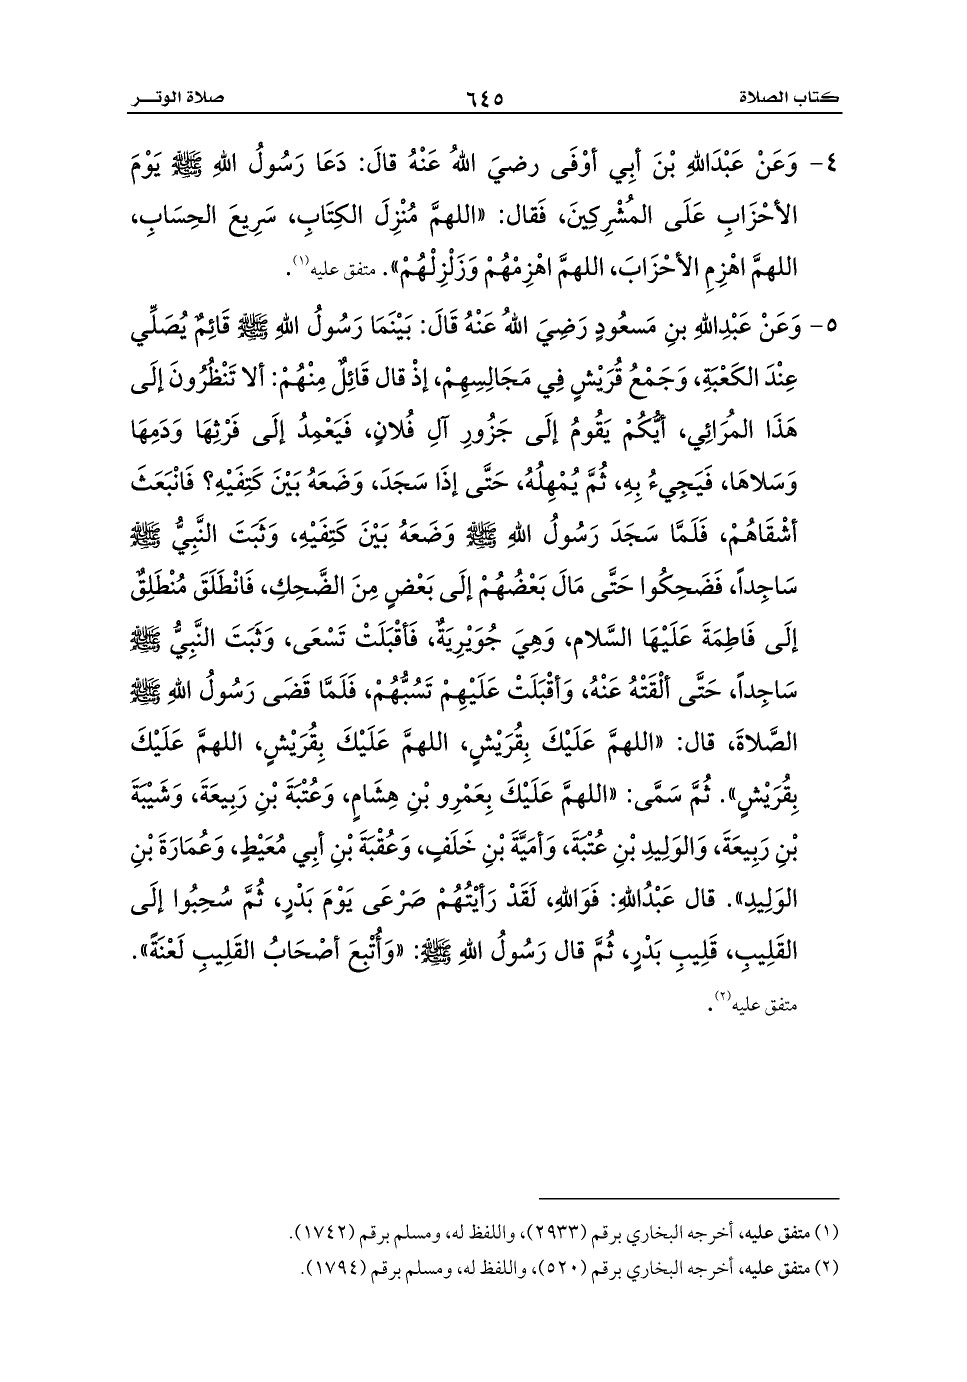 كتاب الصلاة ٦٤٥ صلاة الوتـــر
٤- وَعَنْ عَبْدَاللهِ بْنَ أبِي أوْفَى رضيَ اللهُ عَنْهُ قالَ: دَعَا رَسُولُ اللهِ ﷺ يَوْمَ
الأحْزَابِ عَلَى المُشْرِكِينَ، فَقال: «اللهمَّ مُنْزِلَ الكِتَابِ، سَرِيعَ الحِسَابِ،
اللهمَّ اهْزِمِ الأحْزَابَ، اللهمَّ اهْزِمْهُمْ وَزَلْزِلْهُمْ». متفق عليه(١).
٥- وَعَنْ عَبْدِاللهِ بنِ مَسعُودٍ رَضِيَ اللهُ عَنْهُ قَالَ: بَيْنَمَا رَسُولُ اللهِ ﷺ قَائِمٌ يُصَلِّي
عِنْدَ الكَعْبَةِ، وَجَمْعُ قُرَيْشٍ فِي مَجَالِسِهِمْ، إذْ قال قَائِلٌ مِنْهُمْ: ألا تَنْظُرُونَ إلَى
هَذَا المُرَائِي، أيُّكُمْ يَقُومُ إلَى جَزُورِ آلِ فُلانٍ، فَيَعْمِدُ إلَى فَرْثِهَا وَدَمِهَا
وَسَلاهَا، فَيَجِيءُ بِهِ، ثُمَّ يُمْهِلُهُ، حَتَّى إذَا سَجَدَ، وَضَعَهُ بَيْنَ كَتِفَيْهِ؟ فَانْبَعَثَ
أشْقَاهُمْ، فَلَمَّا سَجَدَ رَسُولُ اللهِ ﷺ وَضَعَهُ بَيْنَ كَتِفَيْهِ، وَثَبَتَ النَّبِيُّ ﷺ
سَاجِداً، فَضَحِكُوا حَتَّى مَالَ بَعْضُهُمْ إلَى بَعْضٍ مِنَ الضَّحِكِ، فَانْطَلَقَ مُنْطَلِقٌ
إلَى فَاطِمَةَ عَلَيْهَا السَّلام، وَهِيَ جُوَيْرِيَةٌ، فَأقْبَلَتْ تَسْعَى، وَثَبَتَ النَّبِيُّ ﷺ
سَاجِداً، حَتَّى ألْقَتْهُ عَنْهُ، وَأقْبَلَتْ عَلَيْهِمْ تَسُبُّهُمْ، فَلَمَّا قَضَى رَسُولُ اللهِ ﷺ
الصَّلاةَ، قال: «اللهمَّ عَلَيْكَ بِقُرَيْشٍ، اللهمَّ عَلَيْكَ بِقُرَيْشٍ، اللهمَّ عَلَيْكَ
بِقُرَيْشٍ». ثُمَّ سَمَّى: «اللهمَّ عَلَيْكَ بِعَمْرِو بْنِ هِشَامٍ، وَعُتْبَةَ بْنِ رَبِيعَةَ، وَشَيْبَةَ
بْنِ رَبِيعَةَ، وَالوَلِيدِ بْنِ عُتْبَةَ، وَأمَيَّةَ بْنِ خَلَفٍ، وَعُقْبَةَ بْنِ أبِي مُعَيْطٍ، وَعُمَارَةَ بْنِ
الوَلِيدِ». قال عَبْدُاللهِ: فَوَاللهِ، لَقَدْ رَأيْتُهُمْ صَرْعَى يَوْمَ بَدْرٍ، ثُمَّ سُحِبُوا إلَى
القَلِيبِ، قَلِيبِ بَدْرٍ، ثُمَّ قال رَسُولُ اللهِ ﷺ: «وَأُتْبِعَ أصْحَابُ القَلِيبِ لَعْنَةً».
متفق عليه(٢).
(١) متفق عليه، أخرجه البخاري برقم (٢٩٣٣)، واللفظ له، ومسلم برقم (١٧٤٢).
(٢) متفق عليه، أخرجه البخاري برقم (٥٢٠)، واللفظ له، ومسلم برقم (١٧٩٤).